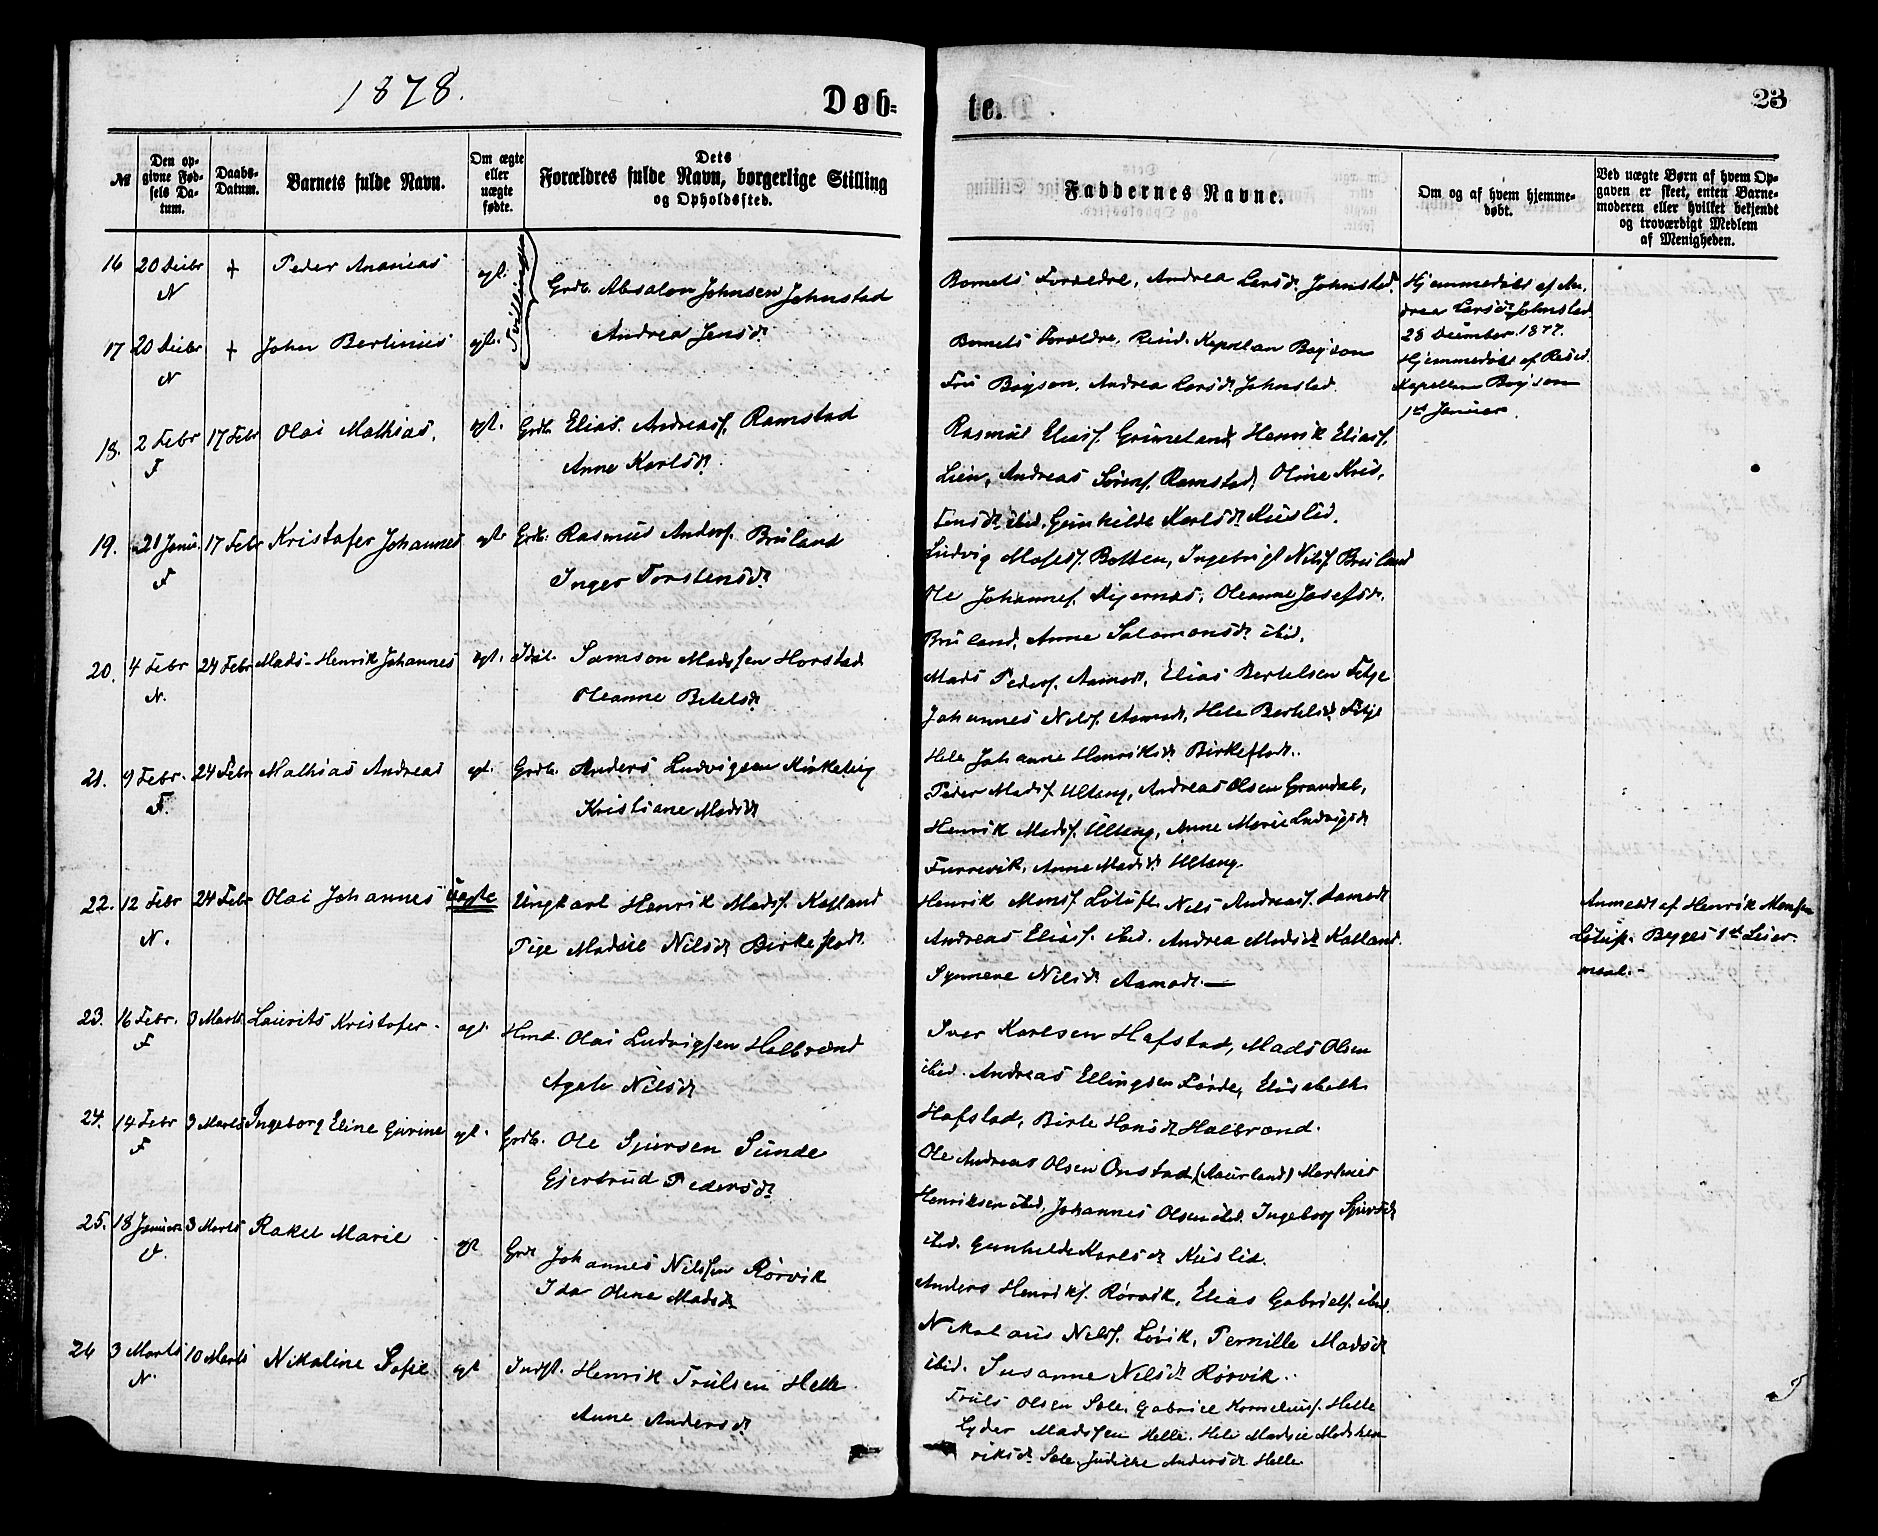 1878.
Døb-
te.
23
№
Den op-
givne Fød-
sels Da-
tum.
Daabs-
Datum.
Barnets fulde Navn.
Om ægte
eller
uægte
fødte.
Dets
Forældres fulde Navn, borgerlige Stilling
og Opholdssted.
Faddernes Navne.
Om og af hvem hjemme-
døbt.
Ved uægte Børn af hvem Op-
gaven er skeet, enten Barne-
moderen eller hvilket bekjendt
og troværdigt Medlem
af Menigheden.
16 20 Decbr + Peder Ananias ægt. Grdb. Absalon Johnsen Johnstad
N
Andrea Jensdr
Tvillinger
Barnets Forældre, Andrea Larsdr Johnstad.
Hjemmedøbt af An-
drea Larsdr Johnstad
28 December 1877.
17 20 Decbr + John Bertinus ægt.
N
Barnets Forældre, Resid. Kapellan Bøyson
Fru Bøyson, Andrea Larsdr Johnstad.
Hjemmedøbt af Resid.
Kapellan Bøyson
1st Januar.
18. 2 Febr 17 Febr Olai Mathias. ægt. Grdb. Elias Andreasf. Ramstad
F
Anne Karlsdr.
Rasmus Eliasf. Grimeland, Henrik Eliasf.
Lien, Andreas Sørenf. Ramstad, Oline Kris-
tensdr ibid. Gunhilde Karlsdr Kuslid.
19. 21 Janu. 17 Febr Kristofer Johannes ægt. Grdb. Rasmus Andersf. Bruland
F
Inger Torstensdr
Ludvig Mosesf. Botten, Ingebrigt Nilsf. Bruland
Ole Johannesf. Kjærnæs, Oleanne Josefsdr.
Bruland, Anne Salamonsdr ibid.
20. 4 Febr 24 Febr Mads-Henrik Johannes ægt. Samson Madssen Horstad
N.
Oleanne
Mads Pedersf. Aamodt, Elias Bertelsen Fitje
Johannes Nilsf. Aamodt, Hele Bertelsdr Fitje
Hele Johanne Henriksdr Birkeflodt.
21. 9 Febr. 24 Febr Mathias Andreas ægt. Grdb. Anders Ludvigsen Kirketeig
F.
Kristiane Madsdr
Peder Madsf. Ultang, Andreas Olsen Grandal,
Henrik Madsf. Ultang, Anne Marie Ludvigsdr
Furrevik, Anne Madsdr Ultang.
22. 12 Febr 24 Febr Olai Johannes Uægte Ungkarl Henrik Madsf. Kalland
N.
Pige Madsie Nilsdr Birkeflodt.
Henrik Monsf. Løtuft, Nils Andreasf. Aamodt
Andreas Eliasf. ibid. Andrea Madsdr Kalland.
Synneve Nilsdr Aamodt. —
Anmeldt af Henrik Monsen
Løtuft. Begges 1st Leier-
maal. -
23. 16 Febr. 3 Marts Laurits Kristofer. ægt. Hmd. Olai Ludvigsen Halbrænd
F
Agate Nilsdr
Iver Karlsen Hafstad, Mads Olsen
ibid. Andreas Ellingsen Førde, Elisabeth
Hafstad, Birte Hansdr Halbrænd.
24. 14 Febr 3 Marts Ingeborg Eline Gurine ægt. Grdb. Ole Sjursen Sunde
F
Gjertrud Pedersdr
Ole Andreas Olsen Onstad, (Naurland) Martinus
Henriksen ibid, Johannes Olsen ibid. Ingeborg Sjursdr
ibid. Gunhilde Karlsdr Kuslid.
25. 18 Januar 3 Marts Rakel Marie - ægt Grdb Johannes Nilssen Rørvik
Ida Oline Madsdr
Anders Henriksf. Rørvik, Elias Gabrielsf. ibid.
Nikolaus Nilsf. Løvik, Pernille Madsdr
ibid. Susanne Nilsdr Rørvik.
26 3 Marts 10 Marts Nikoline Sofie ægt Indst. Henrik Trulsen Helle.
N.
Anne Andersdr
Truls Olsen Sole, Gabriel Korneliusf. Helle
Lyder Madssen Helle. Hele Madsie Mads hen
riksdr Sole, Judithe Andersdr Helle.